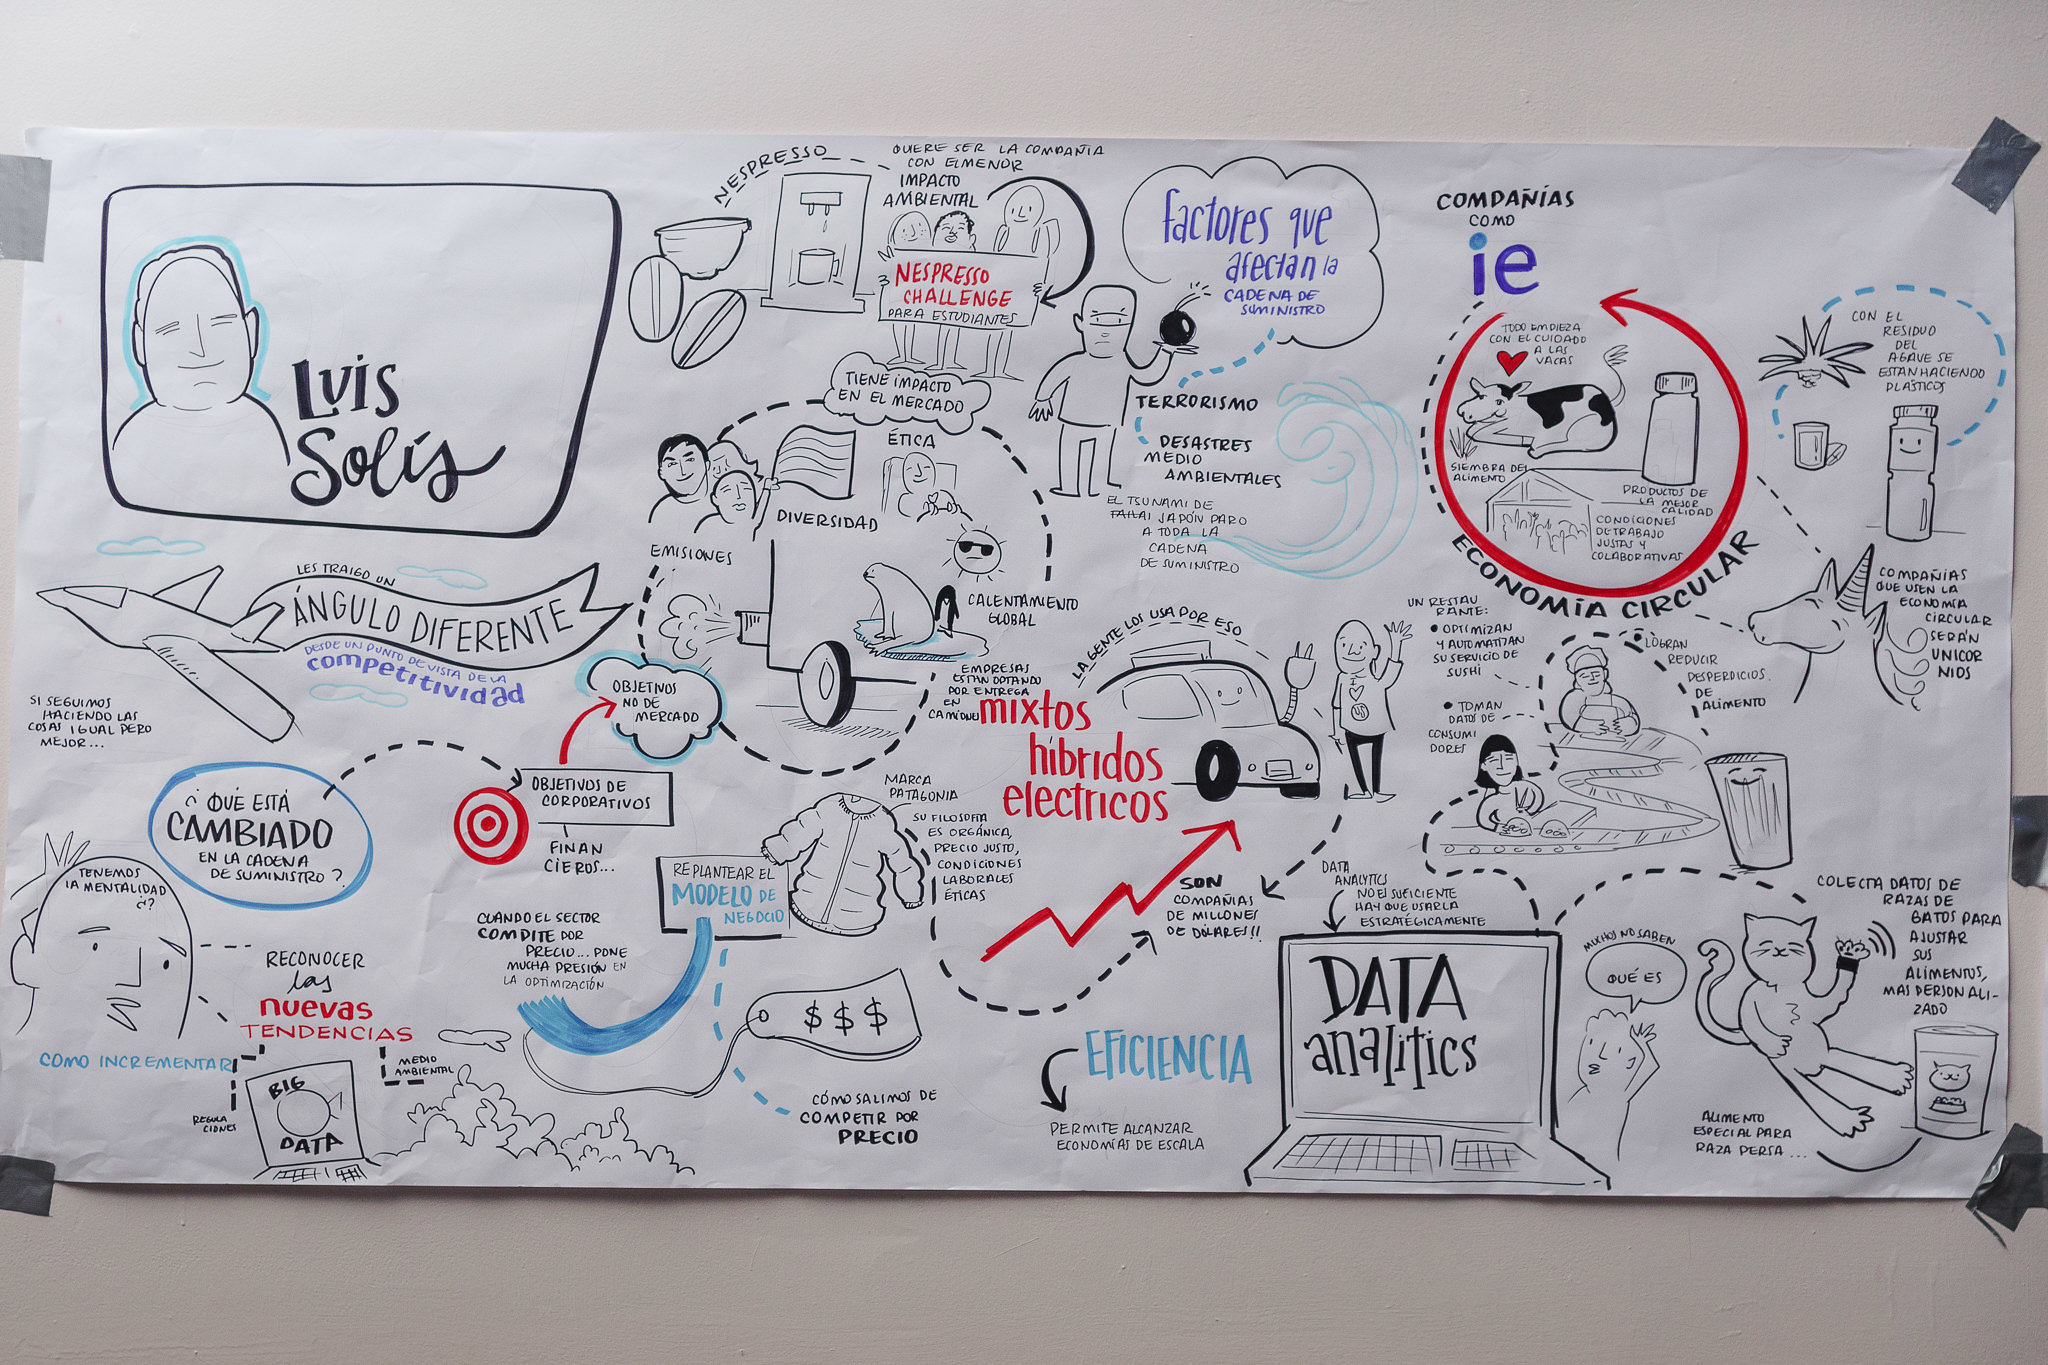 LUIS
SOLÍS
LES TRAIGO UN
ÁNGULO DIFERENTE
DESDE UN PUNTO DE VISTA DE LA
competitividad
SI SEGUIMOS
HACIENDO LAS
COSAS IGUAL PERO
MEJOR...
¿QUÉ ESTÁ
CAMBIADO
EN LA CADENA
DE SUMINISTRO?
TENEMOS
LA MENTALIDAD
¿?
RECONOCER
las
nuevas
TENDENCIAS
COMO INCREMENTAR
REGULA
CIONES
BIG
DATA
MEDIO
AMBIENTAL
OBJETIVOS DE
CORPORATIVOS
FINAN
CIEROS...
OBJETIVOS
NO DE
MERCADO
CUANDO EL SECTOR
COMPITE POR
PRECIO... PONE
MUCHA PRESIÓN EN
LA OPTIMIZACIÓN
REPLANTEAR EL
MODELO DE
NEGOCIO
$ $ $
CÓMO SALIMOS DE
COMPETIR POR
PRECIO
MARCA
PATAGONIA
SU FILOSOFÍA
ES ORGÁNICA,
PRECIO JUSTO,
CONDICIONES
LABORALES
ÉTICAS
NESPRESSO
QUIERE SER LA COMPAÑÍA
CON EL MENOR
IMPACTO
AMBIENTAL
NESPRESSO
CHALLENGE
PARA ESTUDIANTES
TIENE IMPACTO
EN EL MERCADO
ÉTICA
DIVERSIDAD
EMISIONES
CALENTAMIENTO
GLOBAL
EMPRESAS
ESTÁN OPTANDO
POR ENTREGA
EN
CAMIONES
mixtos
híbridos
electricos
LA GENTE LOS USA POR ESO
factores que
afectan la
CADENA DE
SUMINISTRO
TERRORISMO
DESASTRES
MEDIO
AMBIENTALES
EL TSUNAMI DE
JAPÓN PARO
A TODA LA
CADENA
DE SUMINISTRO
SON
COMPAÑÍAS
DE MILLONES
DE DÓLARES!!
EFICIENCIA
PERMITE ALCANZAR
ECONOMÍAS DE ESCALA
COMPAÑÍAS
COMO
ie
TODO EMPIEZA
CON EL CUIDADO
A LAS
VACAS
SIEMBRA DEL
ALIMENTO
PRODUCTOS DE
LA MEJOR
CALIDAD
CONDICIONES
DE TRABAJO
JUSTAS Y
COLABORATIVAS
ECONOMÍA CIRCULAR
CON EL
RESIDUO
DEL
AGAVE SE
ESTAN HACIENDO
PLÁSTICOS
COMPAÑÍAS
QUE USEN LA
ECONOMÍA
CIRCULAR
SERÁN
UNICOR
NIOS
UN RESTAU
RANTE:
• OPTIMIZAN
Y AUTOMATIZAN
SU SERVICIO DE
SUSHI
• TOMAN
DATOS DE
CONSUMI
DORES
• LOGRAN
REDUCIR
DESPERDICIOS
DE
ALIMENTO
DATA
ANALYTICS
NO ES SUFICIENTE
HAY QUE USARLA
ESTRATÉGICAMENTE
DATA
analitics
MUCHOS NO SABEN
QUÉ ES
COLECTA DATOS DE
RAZAS DE
GATOS PARA
AJUSTAR
SUS
ALIMENTOS,
MAS PERSONALI-
ZADO
ALIMENTO
ESPECIAL PARA
RAZA PERSA...